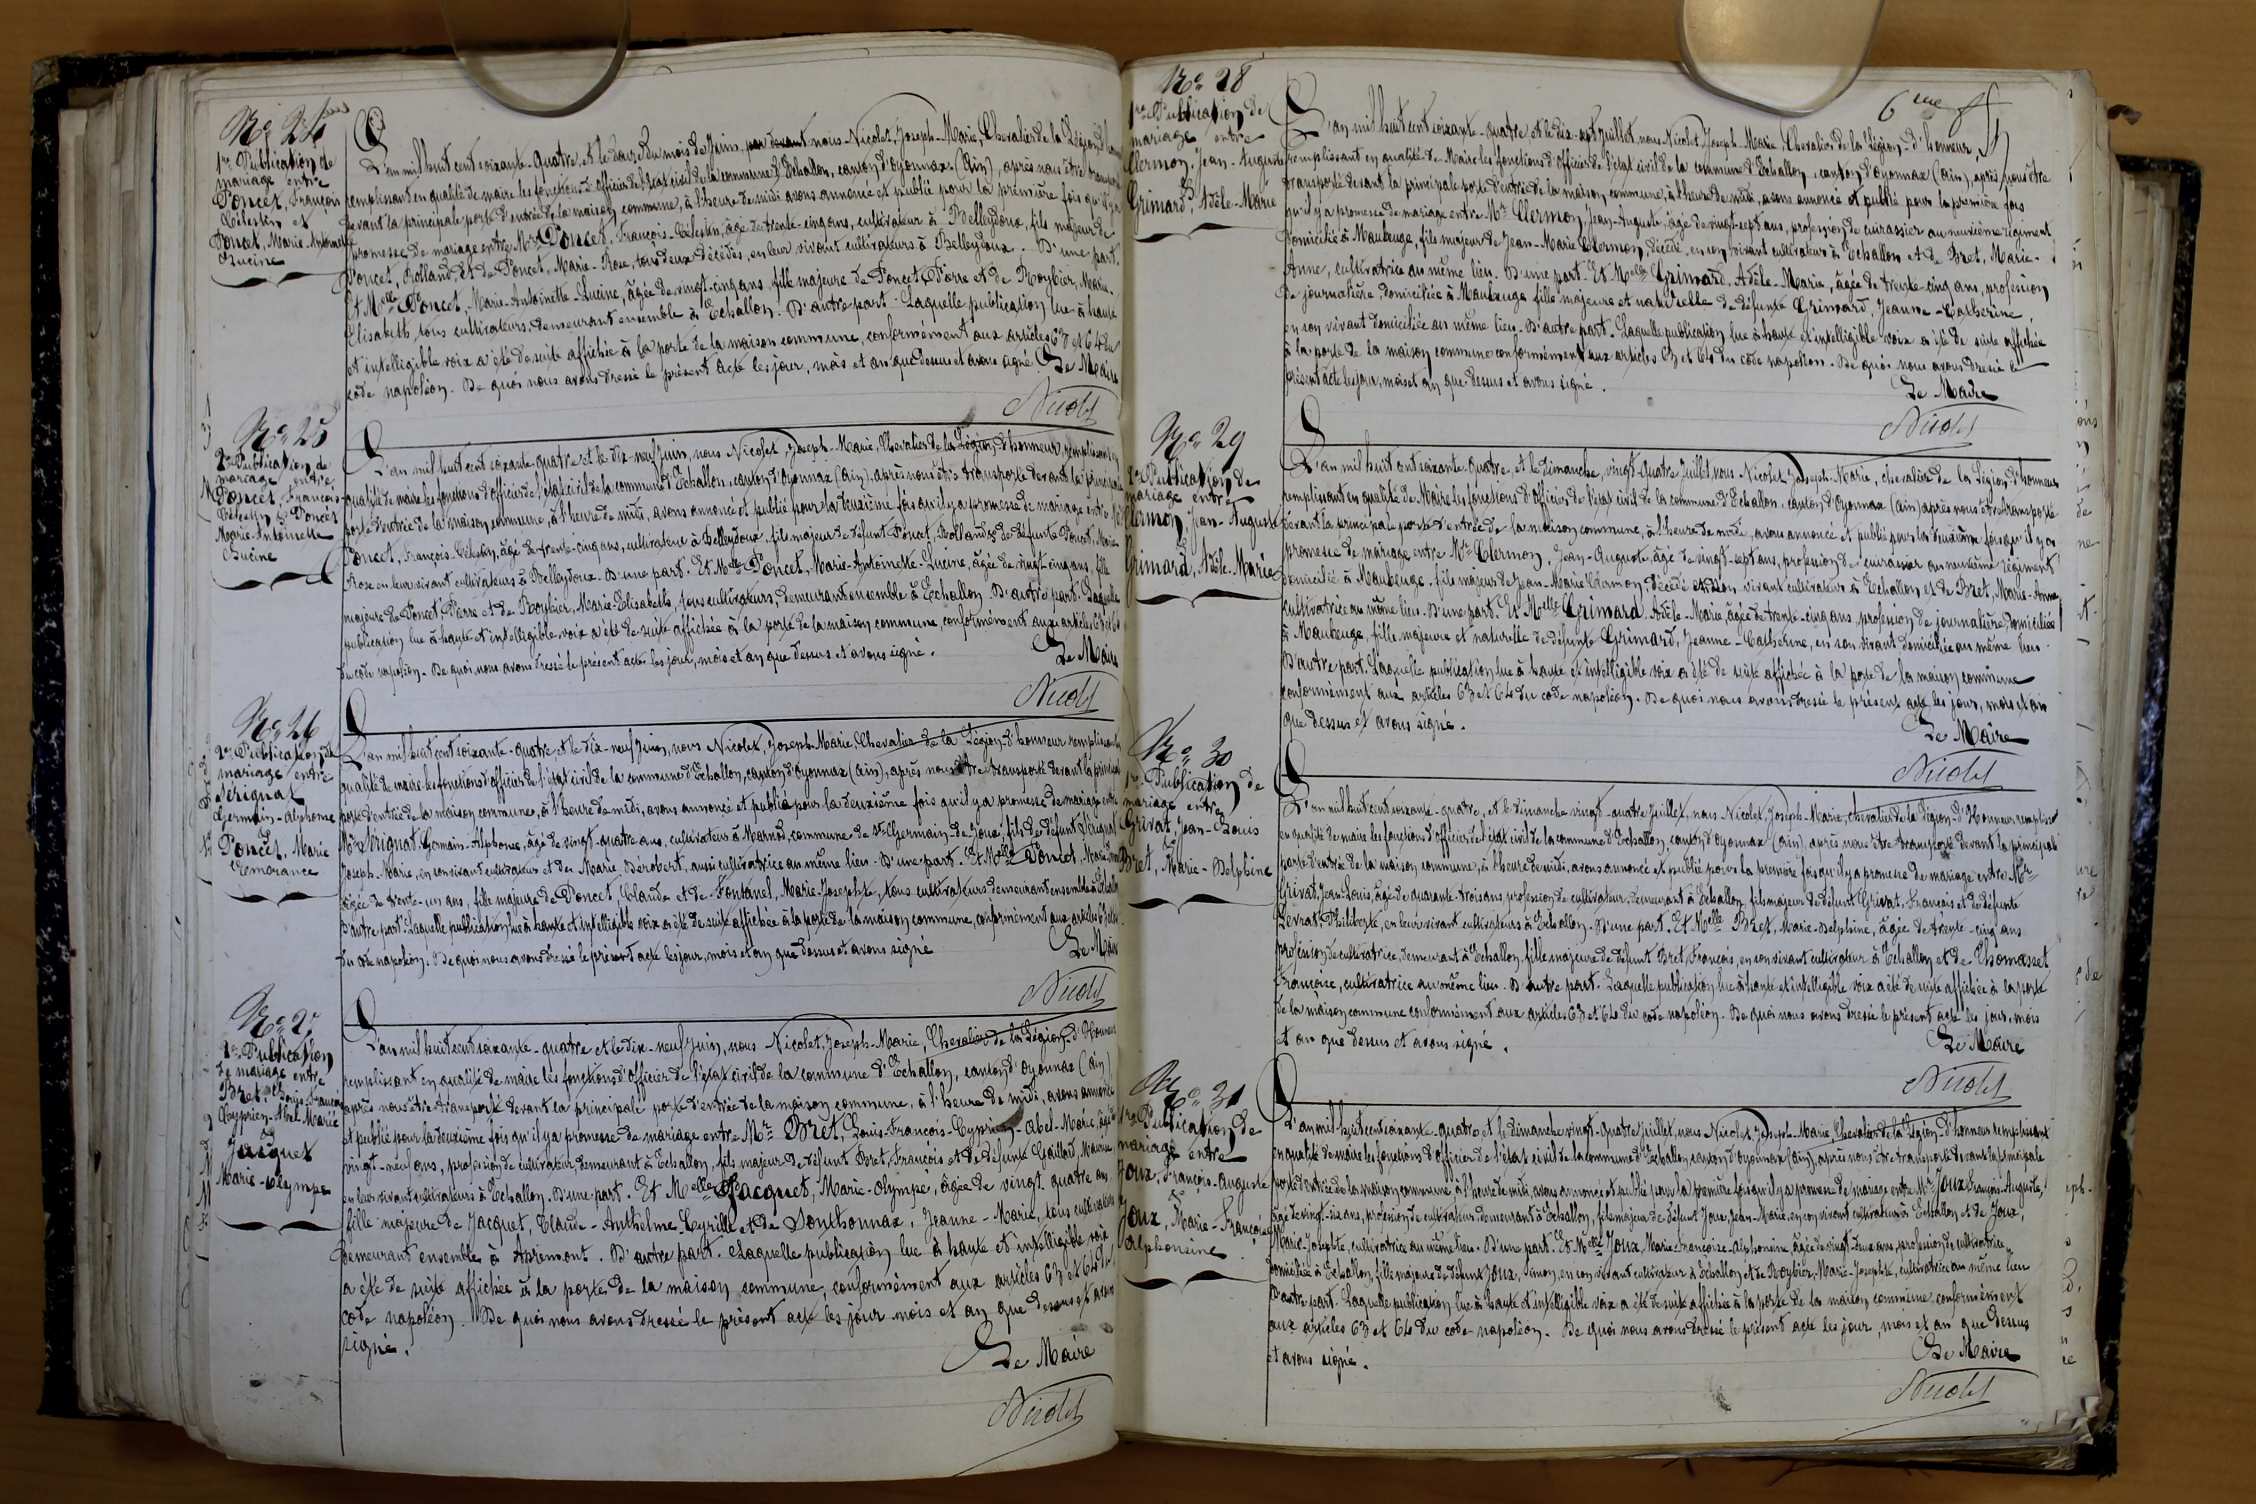 1re Publication de
mariage entre
Poncet, François
Célestin et
Poncet, Marie-Antoinette
Lucine
L'an mil huit cent soixante-quatre, et le douze du mois de Juin, nous Nicolet, Joseph-Marie, Chevalier de la Légion d'
remplissant en qualité de maire les fonctions d'officier de l'état civil de la commune d'Echallon, canton d'Oyonnax (Ain), après nous être transporté
devant la principale porte d'entrée de la maison commune, à l'heure de midi avons annoncé et publié pour la première fois qu'il y a
promesse de mariage entre Mr Poncet, François-Célestin, âgé de trente-cinq ans, cultivateur à Belleydoux, fils majeur de
Poncet, Rolland, et de Poncet, Marie-Rose, tous deux décédés, en leur vivant cultivateurs à Belleydoux. D'une part.
Et Melle Poncet, Marie-Antoinette-Lucine, âgée de vingt-cinq ans, fille majeure de Poncet, Pierre et de Roybier, Marie-
Elisabeth, tous cultivateurs, demeurant ensemble à Echallon. D'autre part. Laquelle publication lue à haute
et intelligible voix a été de suite affichée à la porte de la maison commune, conformément aux articles 63 et 64 du
code napoléon. De quoi nous avons dressé le présent acte les jour, mois et an que dessus et avons signé. Le Maire
Nicolet
No 25
2me Publication de
mariage entre
Poncet, François-
Célestin & Poncet
Marie-Antoinette
Lucine
L'an mil huit cent soixante-quatre et le dix-neuf Juin, nous Nicolet, Joseph-Marie, Chevalier de la Légion d'honneur, remplissant en
qualité de maire les fonctions d'officier de l'état civil de la commune d'Echallon, canton d'Oyonnax (Ain), après nous être transporté devant la principale
porte d'entrée de la maison commune, à l'heure de midi, avons annoncé et publié pour la deuxième fois qu'il y a promesse de mariage entre Mr
Poncet, François-Célestin, âgé de trente-cinq ans, cultivateur à Belleydoux, fils majeur de défunt Poncet, Rolland & de défunte Poncet, Marie-
Rose en leur vivant cultivateurs à Belleydoux. D'une part. Et Melle Poncet, Marie-Antoinette-Lucine, âgée de vingt-cinq ans, fille
majeure de Poncet, Pierre et de Roybier, Marie-Elisabeth, tous cultivateurs, demeurant ensemble à Echallon. D'autre part. Laquelle
publication lue à haute et intelligible voix a été de suite affichée à la porte de la maison commune, conformément aux articles 63 et 64
du code napoléon. De quoi nous avons dressé le présent acte les jour, mois et an que dessus et avons signé. Le Maire
Nicolet
No 26
2me Publication de
mariage entre
Sérignat
Germain-Alphonse
Poncet, Marie
Emorance
L'an mil huit cent soixante-quatre et le dix-neuf Juin, nous Nicolet, Joseph-Marie, Chevalier de la Légion-d'honneur remplissant en
qualité de maire les fonctions d'officier de l'état civil de la commune d'Echallon, canton d'Oyonnax (Ain), après nous être transporté devant la principale
porte d'entrée de la maison commune, à l'heure de midi, avons annoncé et publié pour la deuxième fois qu'il y a promesse de mariage entre
Mr Sérignat Germain-Alphonse, âgé de vingt-quatre ans, cultivateur à Marnod, commune de St-Germain de Joux, fils de défunt Sérignat
Joseph-Marie, en son vivant cultivateur et de Marie Dérobert, aussi cultivatrice au même lieu. D'une part. Et Melle Poncet, Marie
âgée de trente-un ans, fille majeure de Poncet, Claude et de Fontanel, Marie-Josephte, tous cultivateurs demeurant ensemble à Echallon
D'autre part. Laquelle publication lue à haute et intelligible voix a été de suite affichée à la porte de la maison commune, conformément aux articles 63 et 64
du code napoléon. De quoi nous avons dressé le présent acte les jour, mois et an que dessus et avons signé Le Maire
Nicolet
No 27
Publication
de mariage entre
Bret, Louis-François
Cyprien-Abel-Marie
&
Jacquet
Marie-Olympe
L'an mil huit cent soixante-quatre et le dix-neuf Juin, nous Nicolet, Joseph-Marie, Chevalier de la Légion-d'Honneur
remplissant en qualité de maire les fonctions d'officier de l'état civil de la commune d'Echallon, canton d'Oyonnax (Ain)
après nous être transporté devant la principale porte d'entrée de la maison commune, à l'heure de midi, avons annoncé
et publié pour la deuxième fois qu'il y a promesse de mariage entre Mr Bret, Louis-François-Cyprien-Abel-Marie, âgé de
vingt-neuf ans, profession de cultivateur, demeurant à Echallon, fils majeur de défunt Bret, François et de défunte
en leur vivant cultivateurs à Echallon. D'une part. Et Melle Jacquet, Marie-Olympe, âgée de vingt-quatre ans
fille majeure de Jacquet, Claude-Anthelme-Cyrille et de Sonthonnax, Jeanne-Marie, tous cultivateurs
demeurant ensemble à Apremont. D'autre part. Laquelle publication lue à haute et intelligible voix
a été de suite affichée à la porte de la maison commune, conformément aux articles 63 et 64 du
code napoléon. De quoi nous avons dressé le présent acte les jour mois et an que dessus et avons
signé.
Le Maire
Nicolet
6me
No 28
1re Publication de
mariage entre
Clermon, Jean-Auguste
Grimard, Adèle-Marie
L'an mil huit cent soixante-quatre et le dix-sept juillet, nous Nicolet Joseph-Marie, Chevalier de la Légion-d'honneur,
remplissant en qualité de Maire les fonctions d'officier de l'état civil de la commune d'Echallon, canton d'Oyonnax (Ain), après nous être
transporté devant la principale porte d'entrée de la maison commune, à l'heure de midi, avons annoncé et publié pour la première fois
qu'il y a promesse de mariage entre Mr Clermon, Jean-Auguste, âgé de vingt-sept ans, profession de cuirassier au neuvième régiment
domicilié à Maubeuge, fils majeur de Jean-Marie Clermon, décédé en son vivant cultivateur à Echallon et de Bret, Marie-
Anne, cultivatrice au même lieu. D'une part. Et Melle Grimard, Adèle-Marie, âgée de trente-cinq ans, profession
de journalière, domiciliée à Maubeuge fille majeure et naturelle de défunte Grimard, Jeanne-Catherine,
en son vivant domiciliée au même lieu. D'autre part. Laquelle publication lue à haute et intelligible voix a été de suite affichée
à la porte de la maison commune conformément aux articles 63 et 64 du code napoléon. De quoi nous avons dressé le
présent acte les jour, mois et an que dessus et avons signé.
Le Maire
Nicolet
No 29
2me Publication de
mariage entre
Clermon, Jean-Auguste
Grimard, Adèle-Marie
L'an mil huit cent soixante-quatre, et le dimanche, vingt-quatre Juillet, nous Nicolet Joseph-Marie, chevalier de la Légion-d'honneur
remplissant en qualité de Maire les fonctions d'officier de l'état civil de la commune d'Echallon, canton d'Oyonnax (Ain) après nous être transporté
devant la principale porte d'entrée de la maison commune, à l'heure de midi, avons annoncé et publié pour la deuxième fois qu'il y a
promesse de mariage entre Mr Clermon, Jean-Auguste âgé de vingt-sept ans, profession de cuirassier au neuvième régiment
domicilié à Maubeuge, fils majeur de Jean-Marie Clermon, décédé en son vivant cultivateur à Echallon et de Bret, Marie-Anne,
cultivatrice au même lieu. D'une part. Et Melle Grimard Adèle-Marie, âgée de trente-cinq ans profession de journalière, domiciliée
à Maubeuge, fille majeure et naturelle de défunte Grimard, Jeanne-Catherine, en son vivant domiciliée au même lieu.
D'autre part. Laquelle publication lue à haute et intelligible voix a été de suite affichée à la porte de la maison commune
conformément aux articles 63 et 64 du code napoléon. De quoi nous avons dressé le présent acte les jour, mois et an
que dessus et avons signé.
Le Maire
Nicolet
No 30
1re Publication de
mariage entre
Grivat, Jean-Louis
Bret, Marie-Delphine
L'an mil huit cent soixante-quatre, et le dimanche vingt-quatre juillet, nous Nicolet, Joseph-Marie, chevalier de la Légion-d'Honneur remplissant
en qualité de maire les fonctions d'officier de l'état civil de la commune d'Echallon, canton d'Oyonnax (Ain), après nous être transporté devant la principale
porte d'entrée de la maison commune, à l'heure de midi, avons annoncé et publié pour la première fois qu'il y a promesse de mariage entre Mr
Grivat, Jean-Louis, âgé de quarante-trois ans, profession de cultivateur, demeurant à Echallon, fils majeur de défunt Grivat, François et de défunte
Levrat, Philiberte, en leur vivant cultivateurs à Echallon. D'une part. Et Melle Bret, Marie-Delphine, âgée de trente-cinq ans
profession de cultivatrice, demeurant à Echallon, fille majeure de défunt Bret, François, en son vivant cultivateur à Echallon et de Thomasset
Françoise, cultivatrice au même lieu. D'autre part. Laquelle publication lue à haute et intelligible voix a été de suite affichée à la porte
de la maison commune conformément aux articles 63 et 64 du code napoléon. De quoi nous avons dressé le présent acte les jour, mois
et an que dessus et avons signé.
Le Maire
Nicolet
No 31
1re Publication de
mariage entre
Joux, François-Auguste
&
Joux, Marie-Françoise
Alphonsine
L'an mil huit cent soixante-quatre et le dimanche vingt-quatre juillet, nous Nicolet Joseph-Marie, Chevalier de la Légion-d'honneur remplissant
en qualité de maire les fonctions d'officier de l'état civil de la commune d'Echallon, canton d'Oyonnax (Ain), après nous être transporté devant la principale
porte d'entrée de la maison commune, à l'heure de midi, avons annoncé et publié pour la première fois qu'il y a promesse de mariage entre Mr Joux François-Auguste,
âgé de vingt-six ans, profession de cultivateur, demeurant à Echallon, fils majeur de défunt Joux, Jean-Marie, en son vivant cultivateur à Echallon et de Joux,
Marie-Josephte, cultivatrice au même lieu. D'une part. Et Melle Joux Marie-Françoise-Alphonsine âgée de vingt-deux ans, profession de cultivatrice
domiciliée à Echallon, fille majeure de défunt Joux, Simon, en son vivant cultivateur à Echallon et de Roybier, Marie-Josephte, cultivatrice au même lieu
D'autre part. Laquelle publication lue à haute et intelligible voix a été de suite affichée à la porte de la maison commune conformément
aux articles 63 et 64 du code napoléon. De quoi nous avons dressé le présent acte les jour, mois et an que dessus
et avons signé.
Le Maire
Nicolet